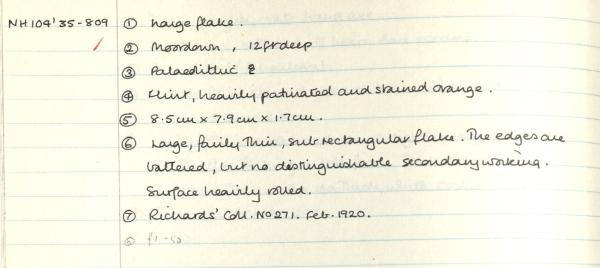 NH104'35-809 ① Large flake.
② Moordown, 12ft deep
③ Palaeolithic
④ Flint, heavily patinated and stained orange.
⑤ 8.5cm x 7.9cm x 1.7cm.
⑥ Large, fairly thin, sub rectangular flake. The edges are
battered, but no distinguishable secondary working.
Surface heavily rolled.
⑦ Richards' Coll. No 271. Feb. 1920.
⑧ £1-50